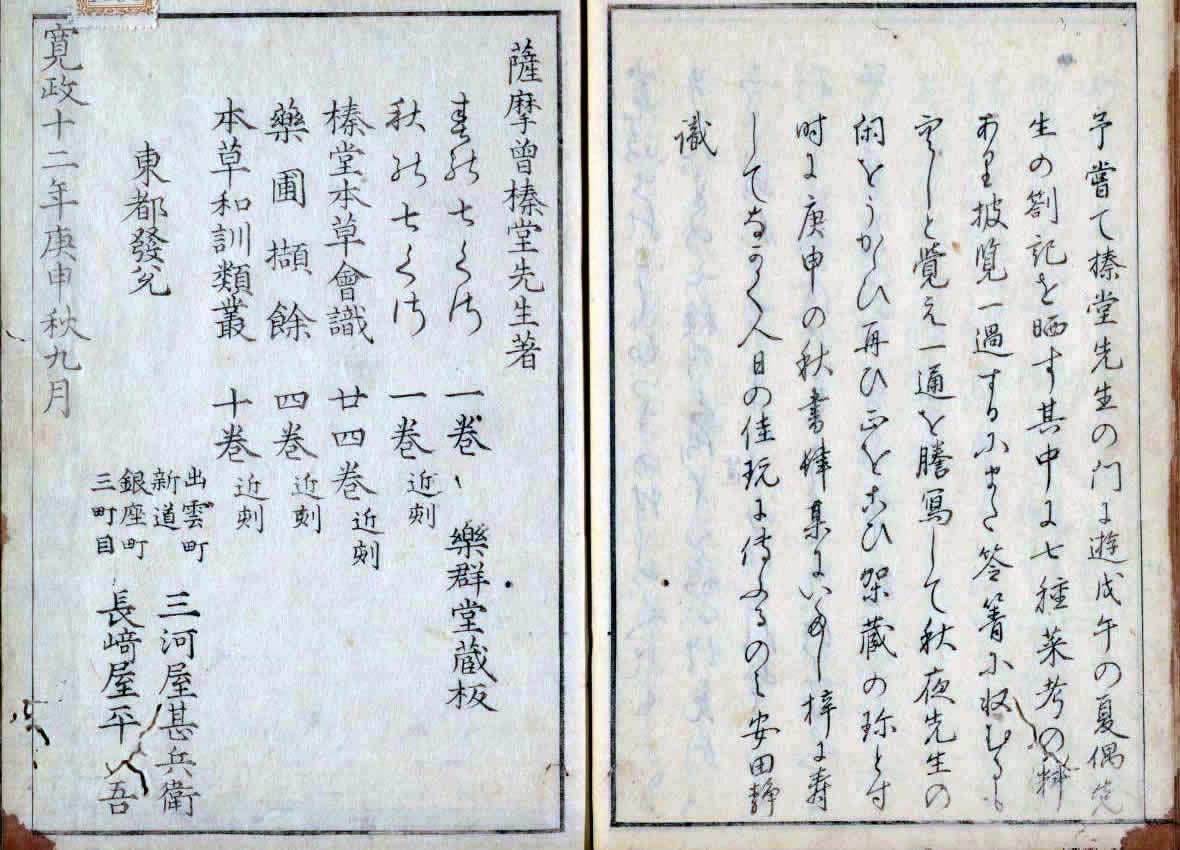 予嘗て榛堂先生の門に遊戊午の夏偶先
生の劄記を晒す其中に七種菜考の料
あり披覧一過するにまた筌筥に収むるも
と覚え一通を謄写して秋夜先生の
閑をうかひ再ひ正をこひ架蔵の珍とす
時に庚申の秋書肆某にいめし梓に寿
してなかく人日の佳玩に侍ふるのミ安田静
識
薩摩曾榛堂先生著
春の七くさ 一巻
秋の七くさ 一巻 近刻
榛堂本草會識 廿四巻 近刻
藥圃擷餘 四巻 近刻
本草和訓類叢 十巻 近刻
樂群堂蔵板
東都發兌
出雲町
新道 三河屋甚兵衛
銀座町
三町目 長﨑屋平吾
寛政十二年庚申秋九月